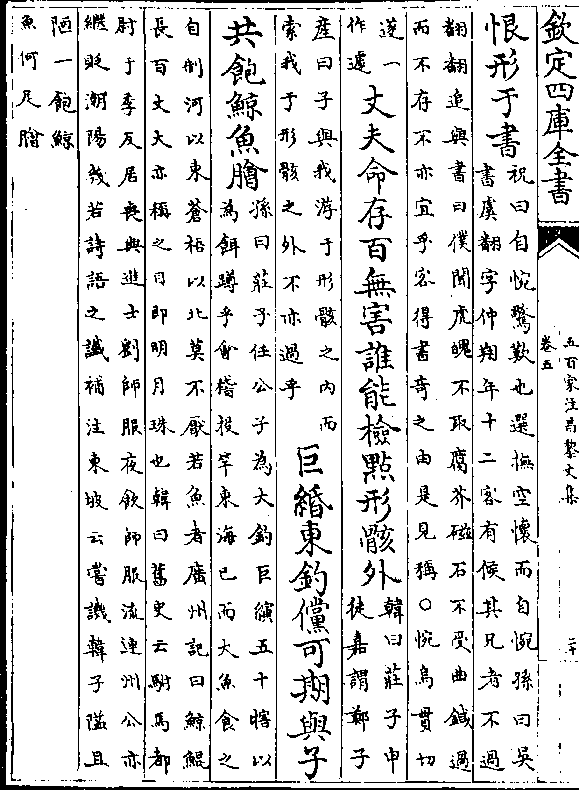 欽定四庫全書
五百家注昌黎文集
卷五
二十
恨形于書
祝曰自惋驚歎也選撫空懷而自惋孫曰吳
書虞翻字仲翔年十二客有候其兄者不過
翻翻追與書曰僕聞虎魄不取腐芥磁石不受曲鍼過
而不存不亦宜乎客得書奇之由是見稱○惋烏貫切
遂一
作遽
丈夫命存百無害誰能檢點形骸外
韓曰莊子申
徒嘉謂鄭子
産曰子與我游于形骸之内而
索我于形骸之外不亦過乎
巨緡東釣儻可期與子
共飽鯨魚膾
孫曰莊子任公子為大釣巨緇五十犗以
為餌蹲乎會稽投竿東海已而大魚食之
自制河以東蒼梧以北莫不厭若魚者廣州記曰鯨鯤
長百丈大亦稱之目即明月珠也韓曰舊史云駙馬都
尉于季友居喪與進士劉師服夜飲師服流連州公亦
繼貶潮陽幾若詩語之讖補注東坡云嘗譏韓子隘且
陋一飽鯨
魚何足膾